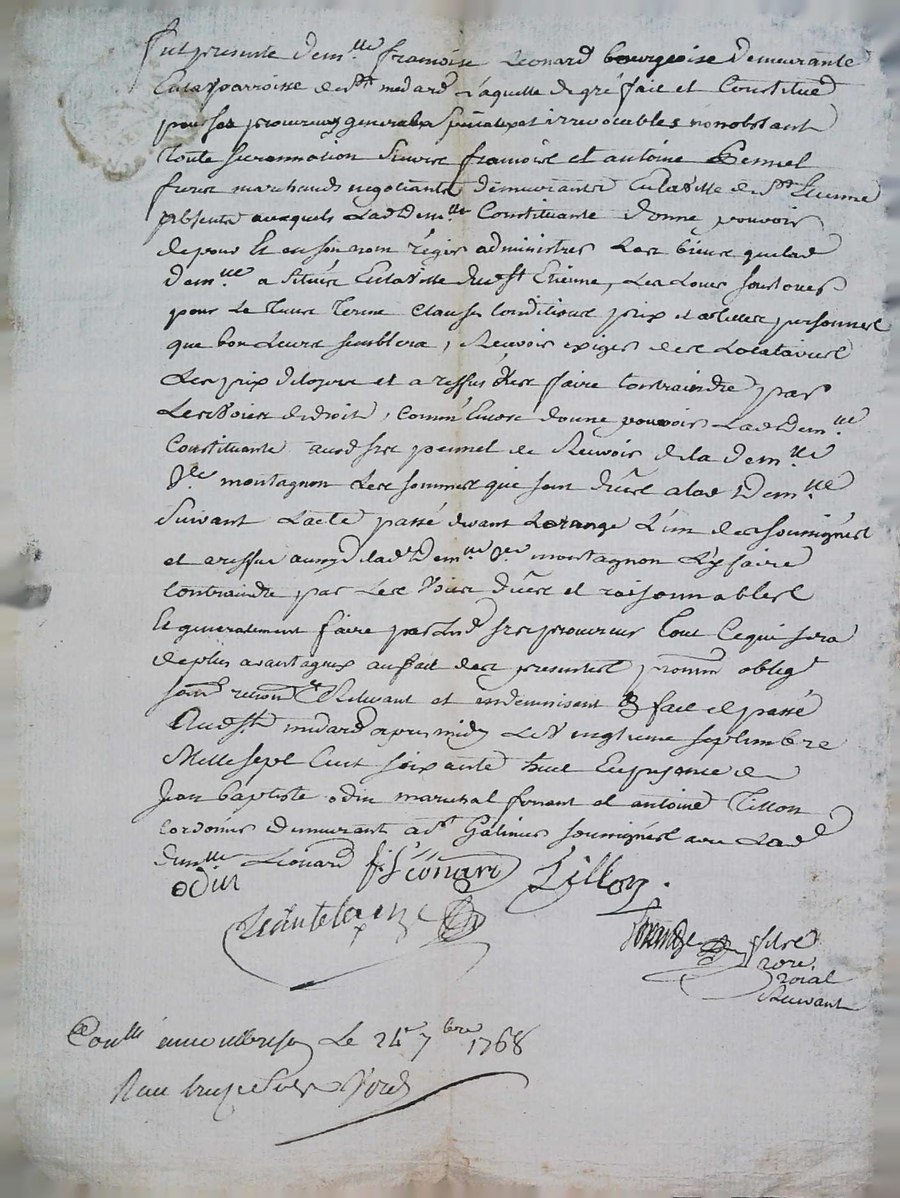 fut presente dem.lle francoise Leonard bourgeoise demeurante
En la parroisse de st medard Laquelle de gré fait et Constitue
pour ses procureurs generaux speciaux et irrevocables nonobstant
toute surannation Sieurs francois et antoine pennel
freres marchands negotiants demeurants En la ville de St Etienne
absents auxquels Lad. Dem.lle Constituante donne pouvoir
de pour Et en son nom régir administrer Les biens que lad
dem.lle a situés En la ville dud st Etienne, Les Louer sous louer
pour Le terme Clauses Conditions prix et a telles personnes
que bon Leurs semblera, Recevoir exiger des Locataires
Les prix de loyers et a reffus d'Es faire Contraindre par
Les voies de droit, Comm'Encore donne pouvoir Lad Dem.lle
Constituante auxd srs pennel de Recevoir de la dem.lle
montagnon Les sommes que sont dues a lad Dem.lle
Suivant L'acte passé devant Lorange L'un des soussignés
et a reffus de lad. Dem.lle montagnon L'y faire
Contraindre par Les voies dues et raisonnables
Et generalement faire par Lesd srs procureurs tout Ce qui sera
de plus avantageux au fait des presentes, prom oblig
soum renon.t Relevant et indemnisant fait et passé
Aud st medard apres midy Le vingt une septembre
Mille sept Cent soixante huit En presence de
Jean baptiste odin marechal ferrant et antoine Tillon
Cordonier demeurant a st Galmier soussignés avec Lad
dem.lle Leonard
odin f. Leonard Tillon.
Chantelauze
Lorange
nore.
roial
Recevant
Con.lle Le 24e 7bre 1768